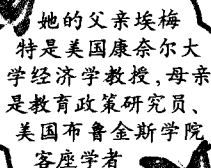 她的父亲埃梅
特是美国康奈尔大
学经济学教授,母亲
是教育政策研究员、
美国布鲁金斯学院
客座学者